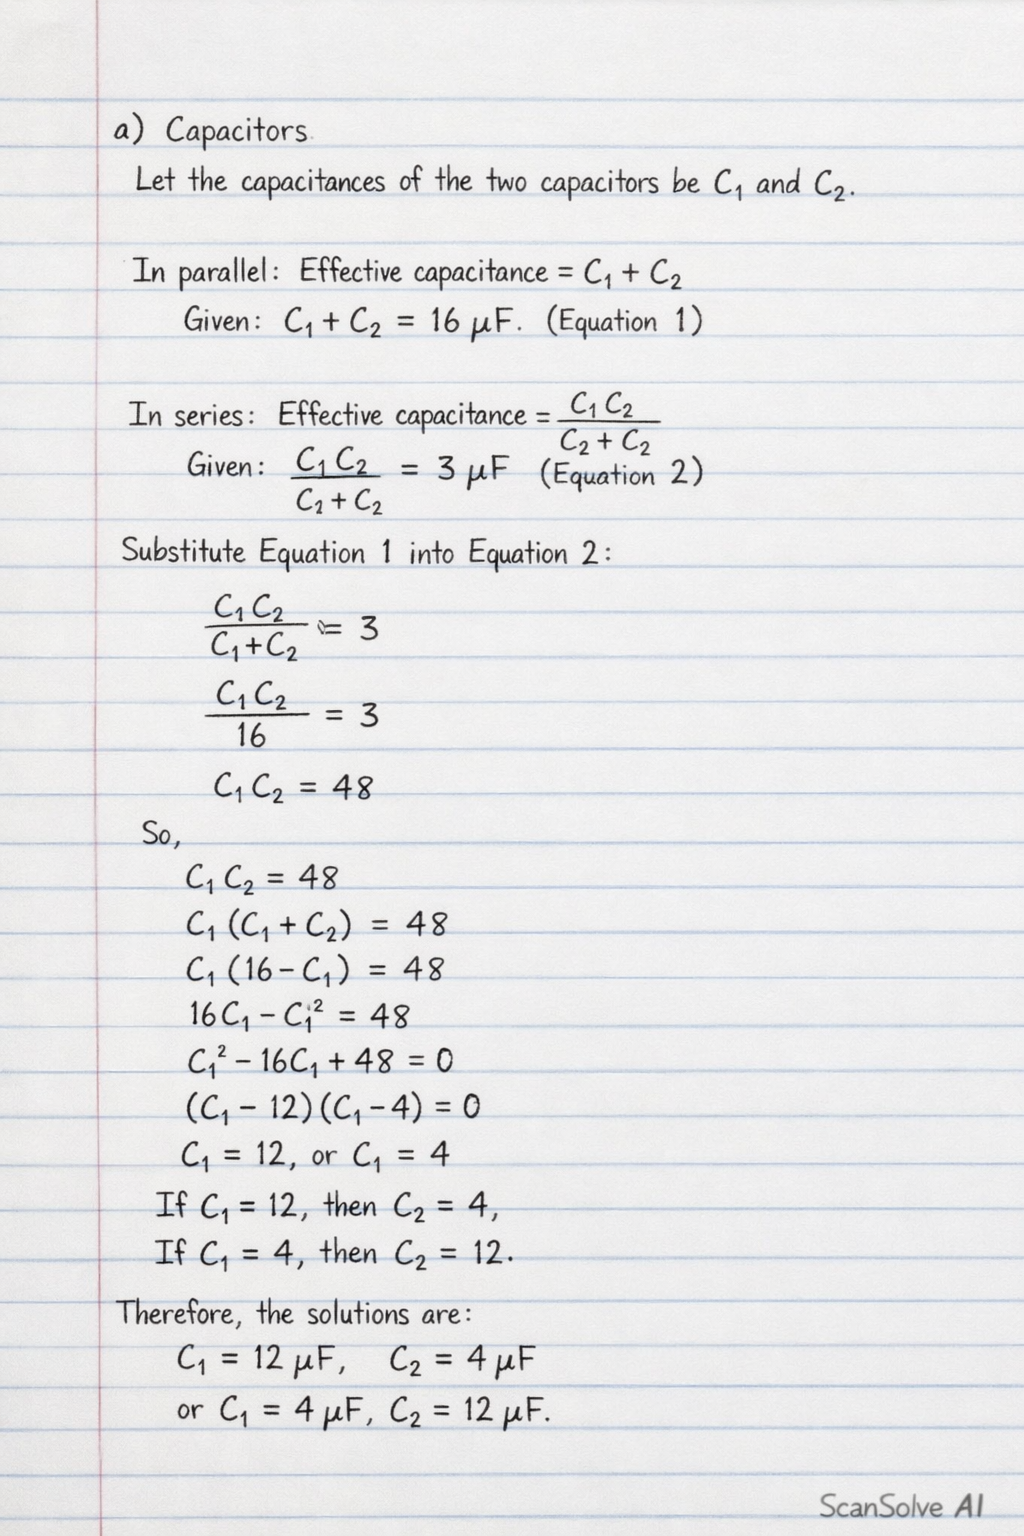 a) Capacitors
Let the capacitances of the two capacitors be C₁ and C₂.
In parallel: Effective capacitance = C₁ + C₂
Given: C₁ + C₂ = 16 μF. (Equation 1)
In series: Effective capacitance = C₁ C₂ / C₂ + C₂
Given: C₁ C₂ / C₂ + C₂ = 3 μF (Equation 2)
Substitute Equation 1 into Equation 2:
C₁ C₂ / C₁ + C₂ = 3
C₁ C₂ / 16 = 3
C₁ C₂ = 48
So,
C₁ C₂ = 48
C₁ (C₁ + C₂) = 48
C₁ (16 - C₁) = 48
16C₁ - C₁² = 48
C₁² - 16C₁ + 48 = 0
(C₁ - 12)(C₁ - 4) = 0
C₁ = 12, or C₁ = 4
If C₁ = 12, then C₂ = 4,
If C₁ = 4, then C₂ = 12.
Therefore, the solutions are:
C₁ = 12 μF, C₂ = 4 μF
or C₁ = 4 μF, C₂ = 12 μF.
ScanSolve AI